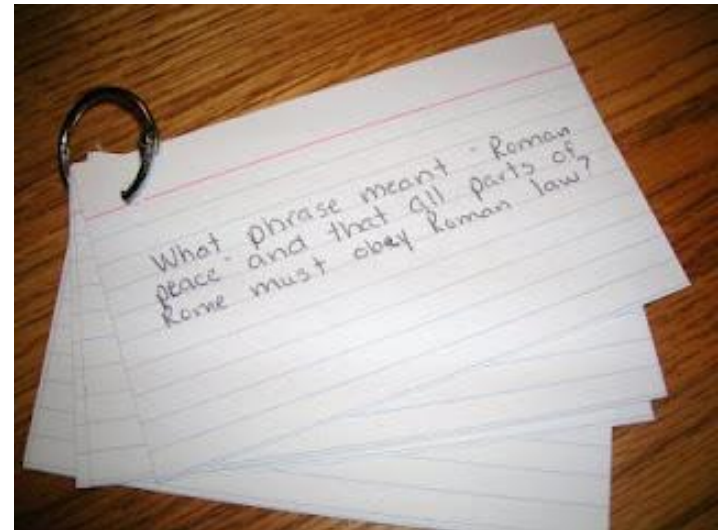 What phrase meant "Roman
peace" and that all parts of
Rome must obey Roman law?